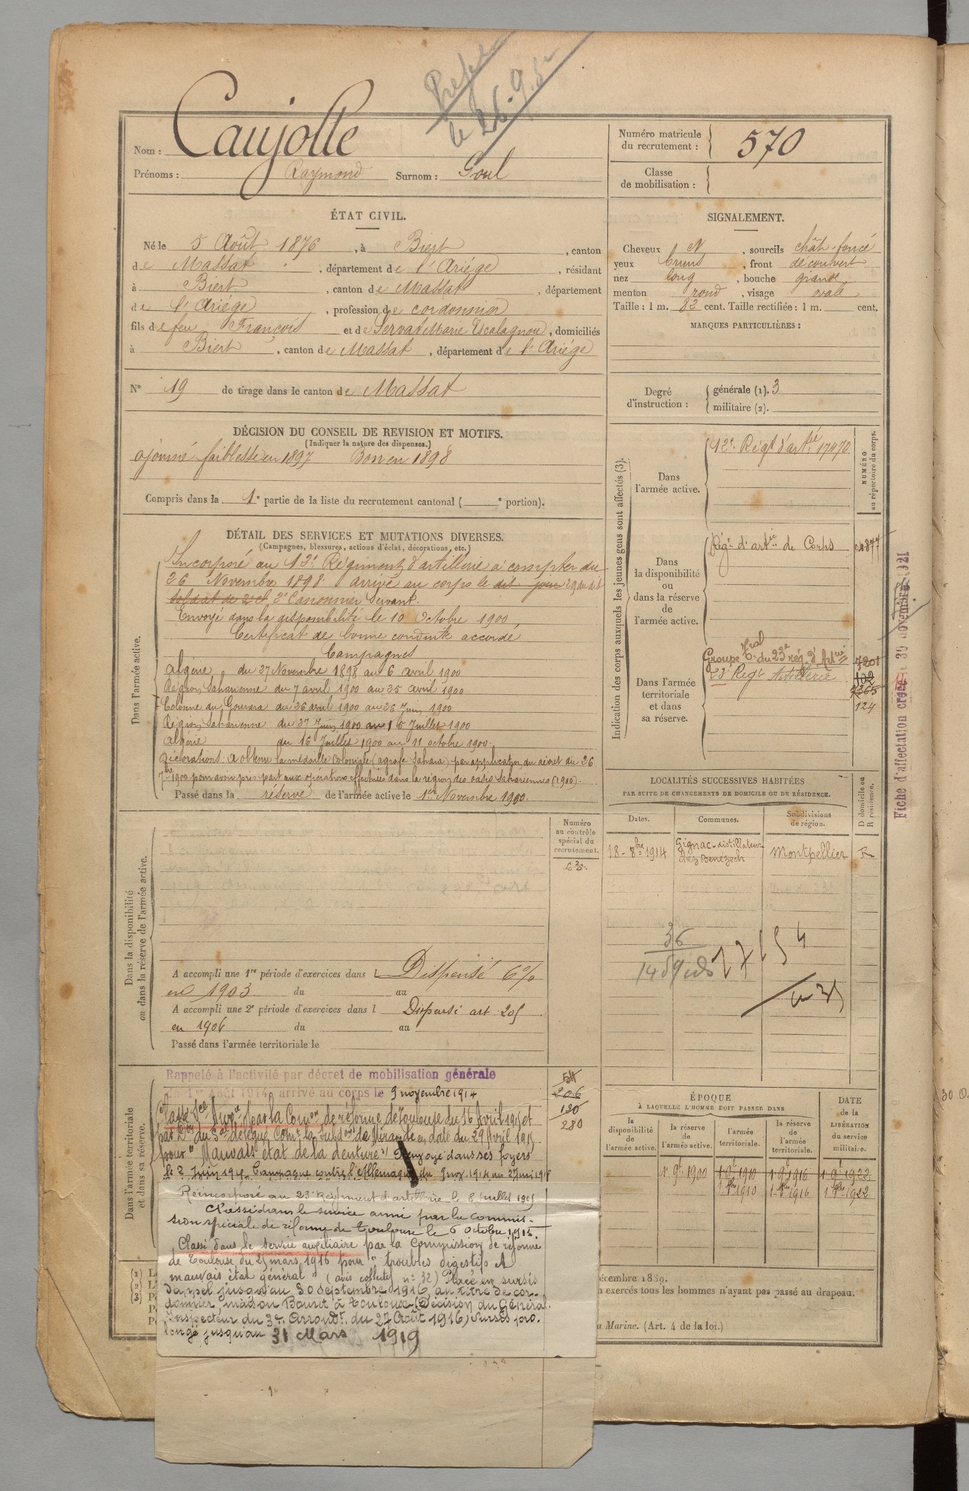 le 26.9.
Nom : Caujolle
Prénoms : Raymond Surnom : Goul
Numéro matricule du recrutement : 570
Classe de mobilisation :
ÉTAT CIVIL.
Né le 5 Août 1876, à Biert, canton
de Massat, département de l'Ariége, résidant
à Biert, canton de Massat, département
de l'Ariége, profession de cordonnier
fils de feu François et de Servat Marie Escalagnou, domiciliés
à Biert, canton de Massat, département de l'Ariége
N° 19 de tirage dans le canton de Massat
SIGNALEMENT.
Cheveux N, sourcils chât-foncé
yeux bruns, front découvert
nez long, bouche grande
menton rond, visage ovale
Taille : 1 m. 83 cent. Taille rectifiée : 1 m. cent.
MARQUES PARTICULIÈRES :
Degré d'instruction : générale (1). 3
militaire (2).
DÉCISION DU CONSEIL DE REVISION ET MOTIFS.
(Indiquer la nature des dispenses.)
ajourné faiblesse en 1897 Bon en 1898
Compris dans la 1e partie de la liste du recrutement cantonal ( e portion).
DÉTAIL DES SERVICES ET MUTATIONS DIVERSES.
(Campagnes, blessures, actions d'éclat, décorations, etc.)
Dans l'armée active.
Incorporé au 12e Régiment d'artillerie à compter du
26 Novembre 1898 arrivé au corps le dit jour
soldat de 2 cl. 2e Canonnier Servant.
Envoyé dans la disponibilité le 10 Octobre 1900,
Certificat de bonne conduite accordé
Campagnes
Algérie du 27 Novembre 1898 au 6 avril 1900
Région Saharienne du 7 avril 1900 au 25 avril 1900
Colonne du Gourara du 26 avril 1900 au 26 Juin 1900
Région Saharienne du 27 Juin 1900 au 15 Juillet 1900
Algérie du 16 Juillet 1900 au 11 octobre 1900
Décorations. A obtenu la médaille Coloniale (agrafe Sahara) par application du décret du 26
1900 pour avoir pris part aux opérations effectuées dans la région des oasis sahariennes (1900).
Passé dans la réserve de l'armée active le 1er Novembre 1900.
Indication des corps auxquels les jeunes gens sont affectés (3).
NUMÉRO au répertoire du corps.
Dans l'armée active.
12e Régt d'artie 17470
Dans la disponibilité ou dans la réserve de l'armée active.
Régt d'artie de Corps
Dans l'armée territoriale et dans sa réserve.
Groupe Tial du 23e rég. d'Artie
23e Régt Artillerie
124
Fiche d'affectation créée le 30 novembre 1921
LOCALITÉS SUCCESSIVES HABITÉES
PAR SUITE DE CHANGEMENTS DE DOMICILE OU DE RÉSIDENCE.
Dates. Communes. Subdivisions de région. D domicile ou R résidence.
18-8bre 1914 Gignac-distillateur Montpellier R
Dans la disponibilité ou dans la réserve de l'armée active.
Numéro au contrôle spécial du recrutement.
A accompli une 1re période d'exercices dans l Dispensé 6%
en 1903 du au
A accompli une 2e période d'exercices dans l Dispensé art. 205
en 1906 du au
Passé dans l'armée territoriale le
36
Dans l'armée territoriale et dans sa réserve.
Rappelé à l'activité par décret de mobilisation générale
arrivé au corps le 3 novembre 1914
206
120
280
Classé Sce Auxre par la Comon de réforme de Toulouse du 16 Avril 1915 et
pour "Mauvais état de la denture". Renvoyé dans ses foyers
Campagne contre l'Allemagne du
Réincorporé au 23e Régiment d'artillerie le 8 juillet 1915
Classé dans le service armé par la Commis-
sion spéciale de réforme de Toulouse le 6 octobre 1915.
Classé dans le service auxiliaire par la Commission de réforme
de Toulouse du 25 mars 1916 pour "troubles digestifs et
mauvais état général" (avis collectif n° 32) Placé en sursis
d'appel jusqu'au 30 septembre 1916, au titre de cor-
donnier, maison Bouret à Toulouse (Décision du Général
Inspecteur du 3e Arrondt. du 27 Août 1916) Sursis pro-
longé jusqu'au 31 Mars 1919
ÉPOQUE
À LAQUELLE L'HOMME DOIT PASSER DANS
DATE de la LIBÉRATION du service militaire.
la disponibilité de l'armée active. la réserve de l'armée active. l'armée territoriale. la réserve de l'armée territoriale.
1 9bre 1900 1 9bre 1910 1 9bre 1916 1 9bre 1922
1 8bre 1910 1 8bre 1916 1 8bre 1922
décembre 1889.
exercés tous les hommes n'ayant pas passé au drapeau.
Marine. (Art. 4 de la loi.)